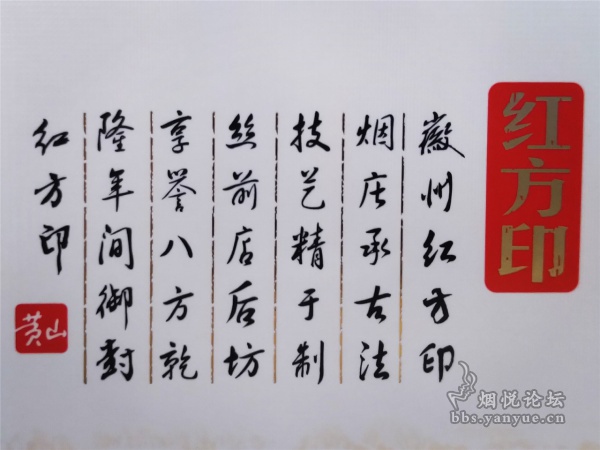 红方印
徽州红方印
烟庄承古法
技艺精于制
丝前店后坊
享誉八方乾
隆年间御封
红方印
黄山
烟悦论坛
bbs.yanyue.cn